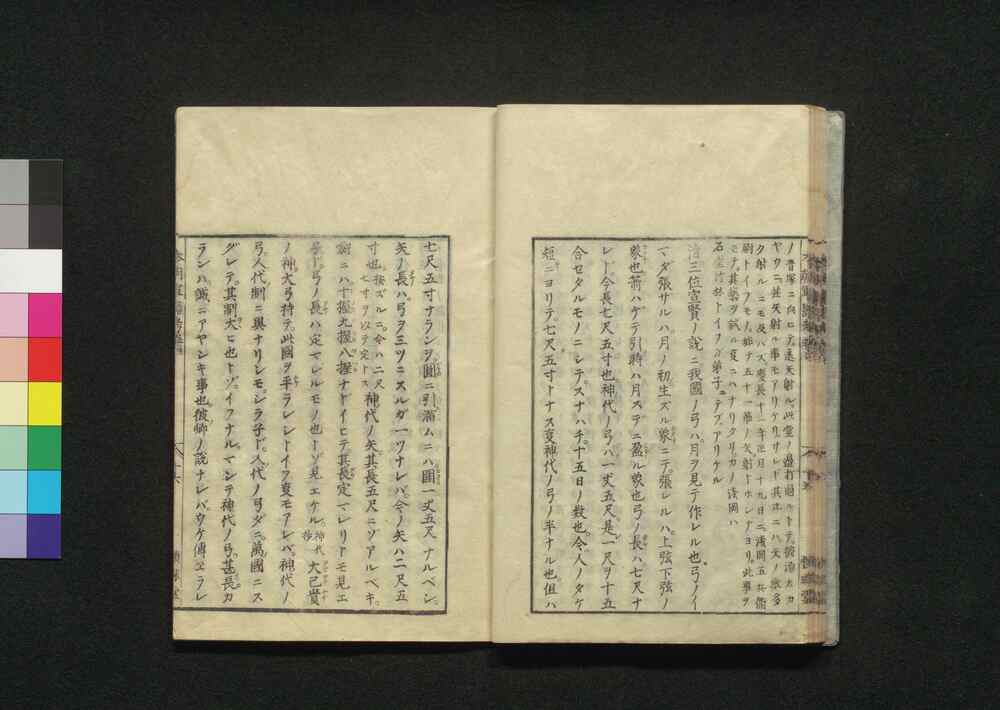 ノ書塚ニ向ヒテ遠矢射ル此堂ノ邊打廻ルトテ彼治カカ
ヤウニ其矢射ル事モアリケリサレド其比ニハ矢ノ數多
ク射ルニモ及バズ慶長十一年正月十九日ニ淺岡五兵衛
尉トイフモノ始テ五十一筋ノ矢射トホシケルヨリ此事ヲ
モテ其藝ヲ試ル事ニハナリタリカノ淺岡ハ
石堂竹林トイヲシ弟子ニテゾアリケル
清三位宣賢ノ説ニ我國ノ弓ハ月ヲ見テ作レル也弓ノイ
マダ張サルハ月ノ初生ズル象ニテ張レルハ上弦下弦ノ
象也箭ハゲテ引時ハ月ステニ盈ル象也弓ノ長ハ七尺ナ
レド今長七尺五寸也神代ノ弓ハ一丈五尺是一尺ヲ十五
合セタルモノニシテスナハチ十五日ノ數也今人ノタケ
短ニヨリテ七尺五寸トナス事神代ノ弓ノ半ナル也但ハ
七尺五寸ナランヲ圓ニ引滿ムニハ圓一丈五尺ナルベシ
矢ノ長ハ弓ヲ三ツニスルガ一ツナレバ今ノ矢ハ二尺五
寸也按ズルニ今ハ二尺七寸ヲ以テ定トス神代ノ矢其長五尺ニゾアルベキ
劔ニハ十握九握八握ナドイヒテ其長定マレリトモ見エ
ネド弓ノ長ハ定マレルモノ也トゾ見エケル神代大己貴
ノ神大弓持テ此國ヲ平ラレシトイフ事モアレバ神代ノ
弓人代ノ制ニ異ナリシモシラ子ド人代ノ弓ダニ萬國ニス
グレテ其制大ヒ也トゾイフナルマシテ神代ノ弓甚長カ
ランハ誠ニアヤシキ事也彼卿ノ説ナレバウケ傳ヱラレ